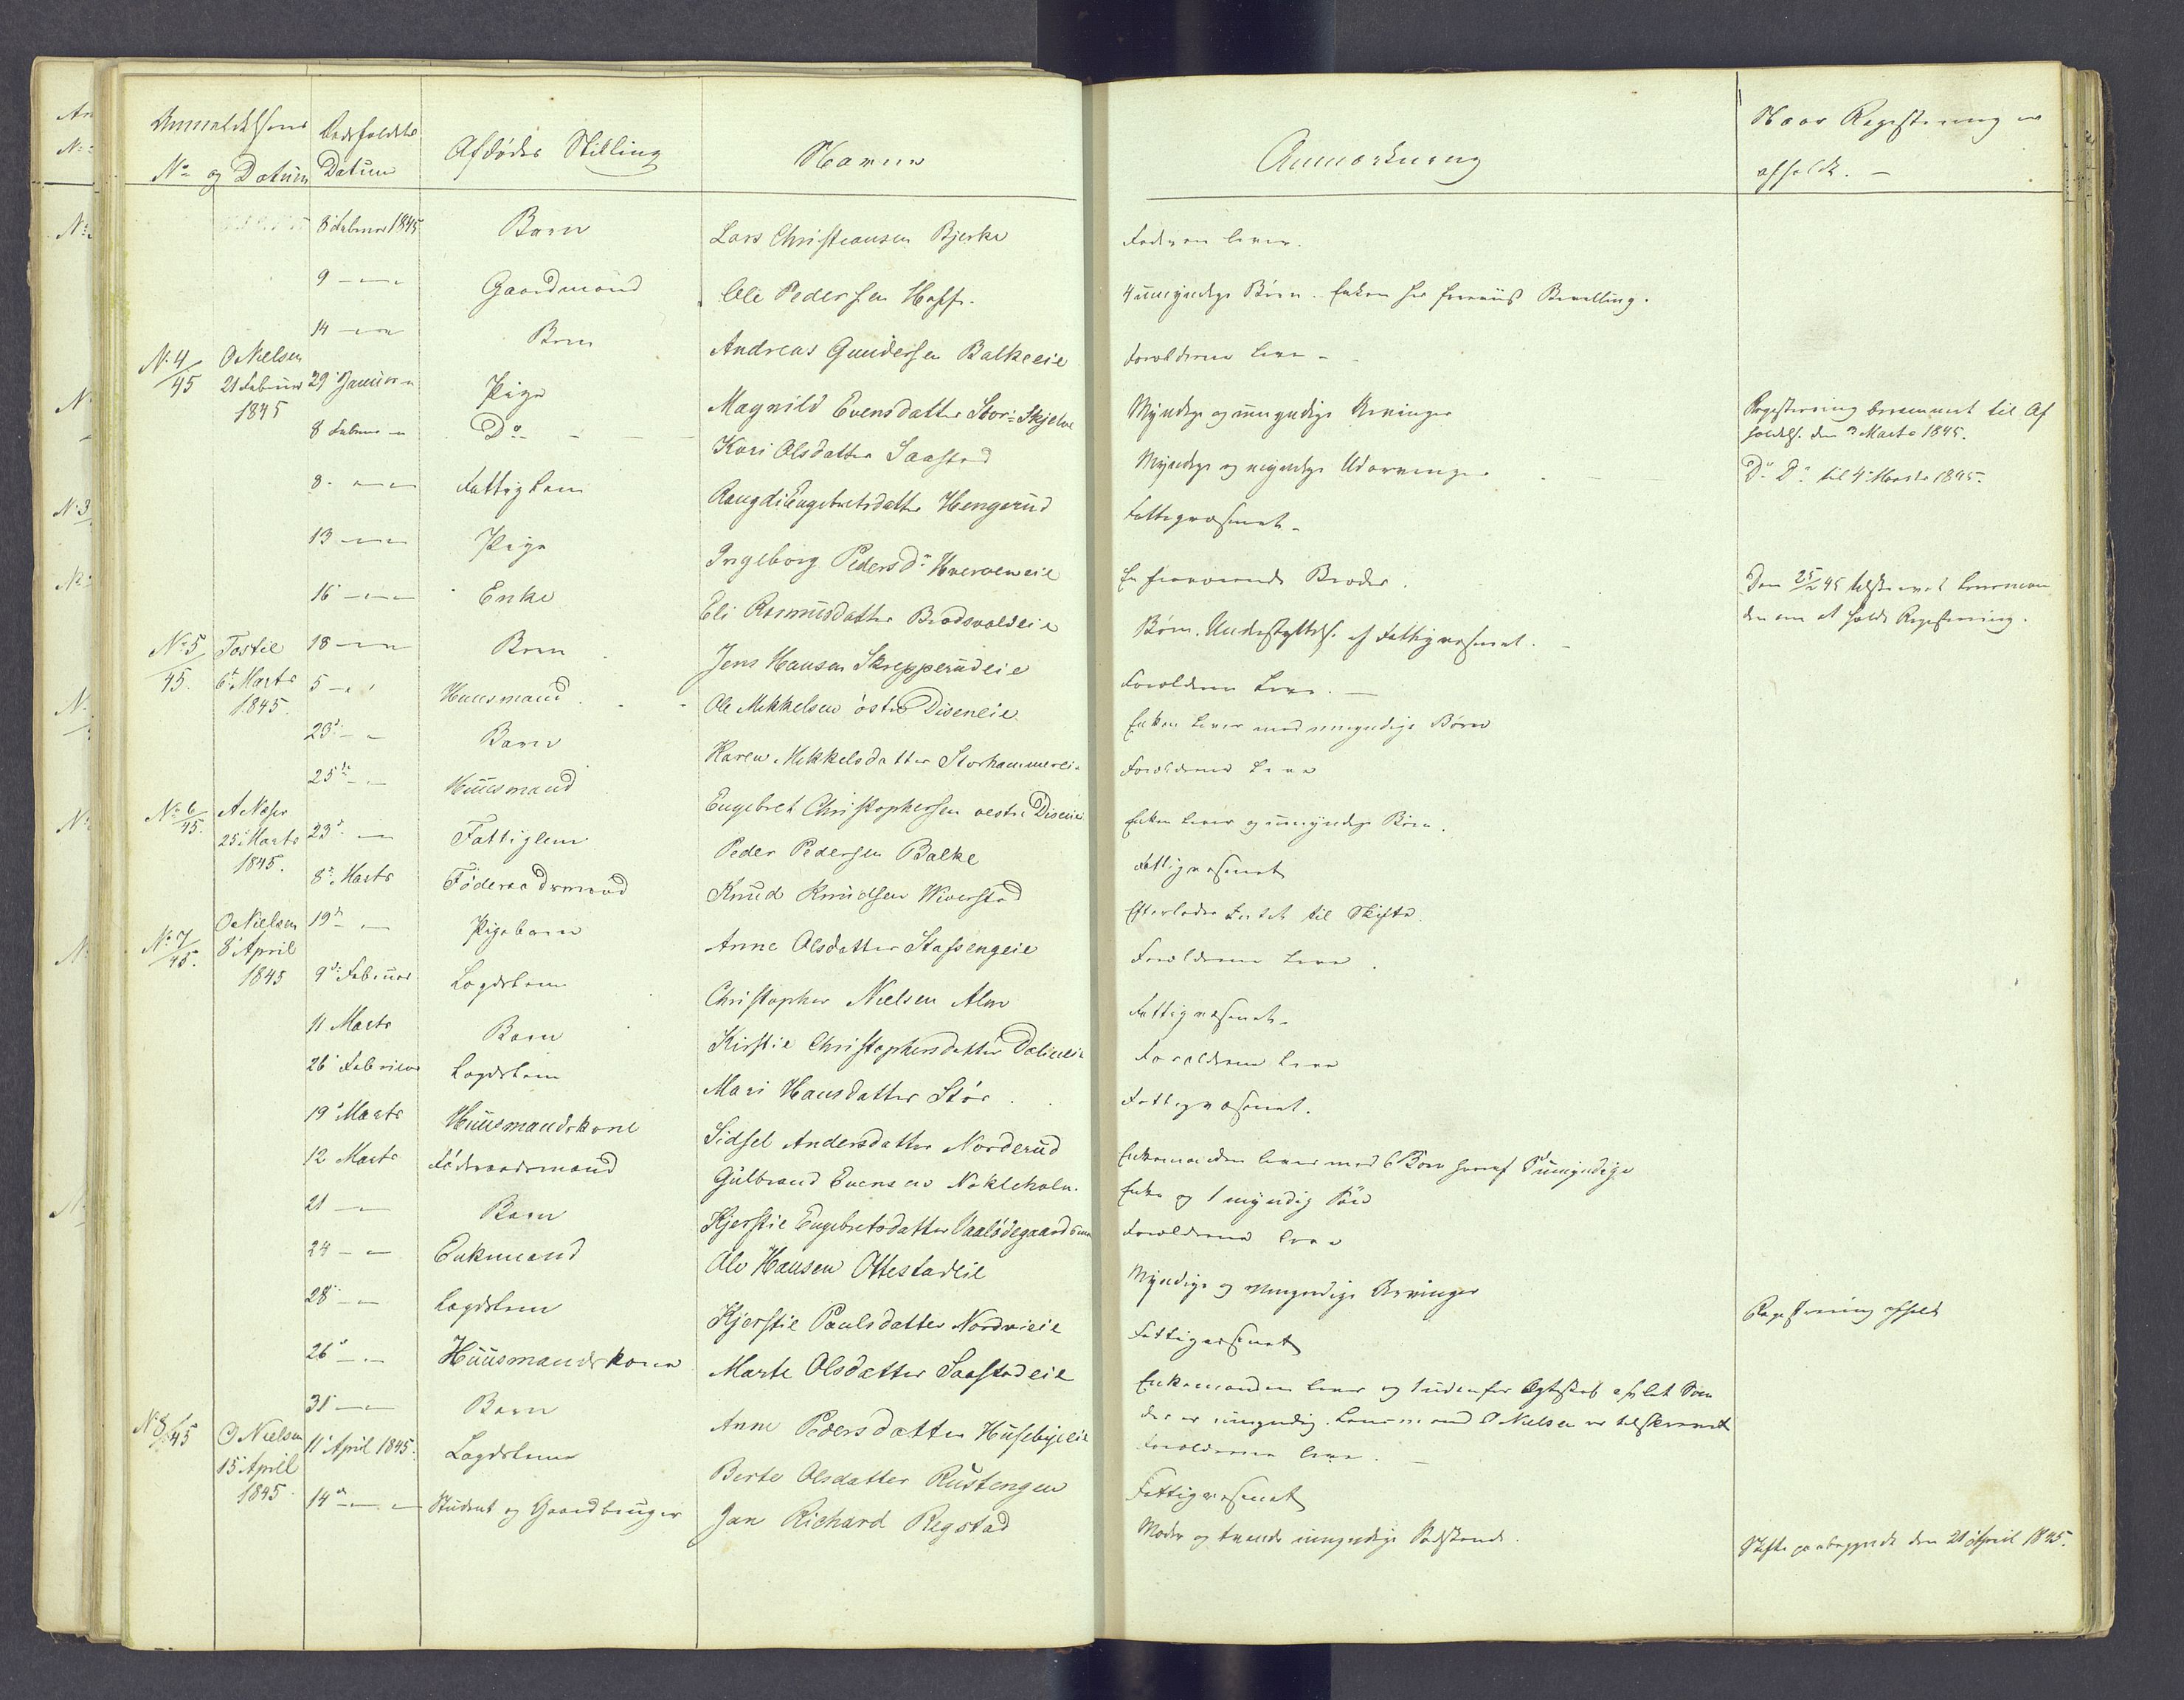 Anmeldelsens
No og Datum
Dødsfaldets
Datum
Afdødes Stilling
Navne
Anmærkning
Naar Registrering er
afholdt. -
8 Februar 1845 Barn Lars Christiansen Bjerke Faderen lever.
9 - Gaardmand Ole Pedersen Hoff. 4 umyndige Børn. Enken har Bevilling.
14 - Barn Andreas Gundersen Balkeeie Forældrene leve -
No 4/45 O Nielsen 21 Februar 1845 29 Januar Pige Magnild Evensdatter Stor-Skjelve Myndige og umyndige Arvinger Registrering berammet til Af
holdelse den 3 Marts 1845.
8 Februar Do - - - Kari Olsdatter Saastad Myndige og myndige Udarvinger Do Do til 4 Marts 1845.
8 - Fattiglem Raugdi Engebretsdatter Hengerud Fattigvæsenet -
13 - Pige Ingeborg Pedersdr Hverveneie En fraværende Broder. Den 25/2 45 tilskrevet Lensman
den om at holde Registrering.
16 - Enke Eli Rasmusdatter Brodsvoldeie Børn. Understøttelse af Fattigvæsenet.
No 5/45. Tostie 6te Marts 1845. 18 - Barn Jens Hansen Skrepperudeie Forældrene leve. -
5 - Huusmand Ole Mikkelsen østre Diseneie Enken lever med umyndige Børn
23 - Barn Karen Mikkelsdatter Storhammerei Forældrene leve
25 - Huusmand Engebret Christophersen vestre Disenei Enken lever og umyndige Børn.
No 6/45. A Næss 25 Marts 1845. 23 - Fattiglem Peder Pedersen Balke Fattigvæsenet
8 Marts Føderaadsmand Knud Knudsen Wiverstad Efterlader Intet til Skifte.
No 7/45. O Nielsen 8 April 1845 19 - Pigebarn Anne Olsdatter Stafsengeie Forældrene leve.
9 Februar Lægdslem Christopher Nielsen Alm Fattigvæsenet -
11 Marts Barn Kirstie Christophersdatter Dalieeie Forældrene leve
26 Februar Lægdslem Mari Hansdatter Stór Fattigvæsenet.
19 Marts Huusmandskone Sidsel Andersdatter Norderud Enkemanden lever med 6 Børn hvoraf 5 umyndige
12 Marts Føderaadsmand Gulbrand Evensen Nækleholm. Enke og 1 myndig Søn
21 - Barn Kjerstie Engebretsdatter Vaalødegaards Forældrene leve
24 - Enkemand Ole Hansen Ottestadeie Myndige og Umyndige Arvinger Registrering afholdt
28 - Lægdslem Kjerstie Paulsdatter Nordvieie Fattigvæsenet
26 - Huusmandskone Marte Olsdatter Saastadeie Enkemanden lever og 1 udenfor Ægteskab avlet Søn
der er umyndig. Lensmand O Nielsen er tilskrevet
31 - Barn Anne Pedersdatter Husebyeeie Forældrene leve. -
No 8/45 O Nielsen 15 April 1845 11 April 1845. Lægdslem Berte Olsdatter Rustengen Fattigvæsenet
14 - Student og Gaardbruger Jan Richard Regstad Moder og umyndige Sødskende. Skifte paabegyndt den 21 April 1845.